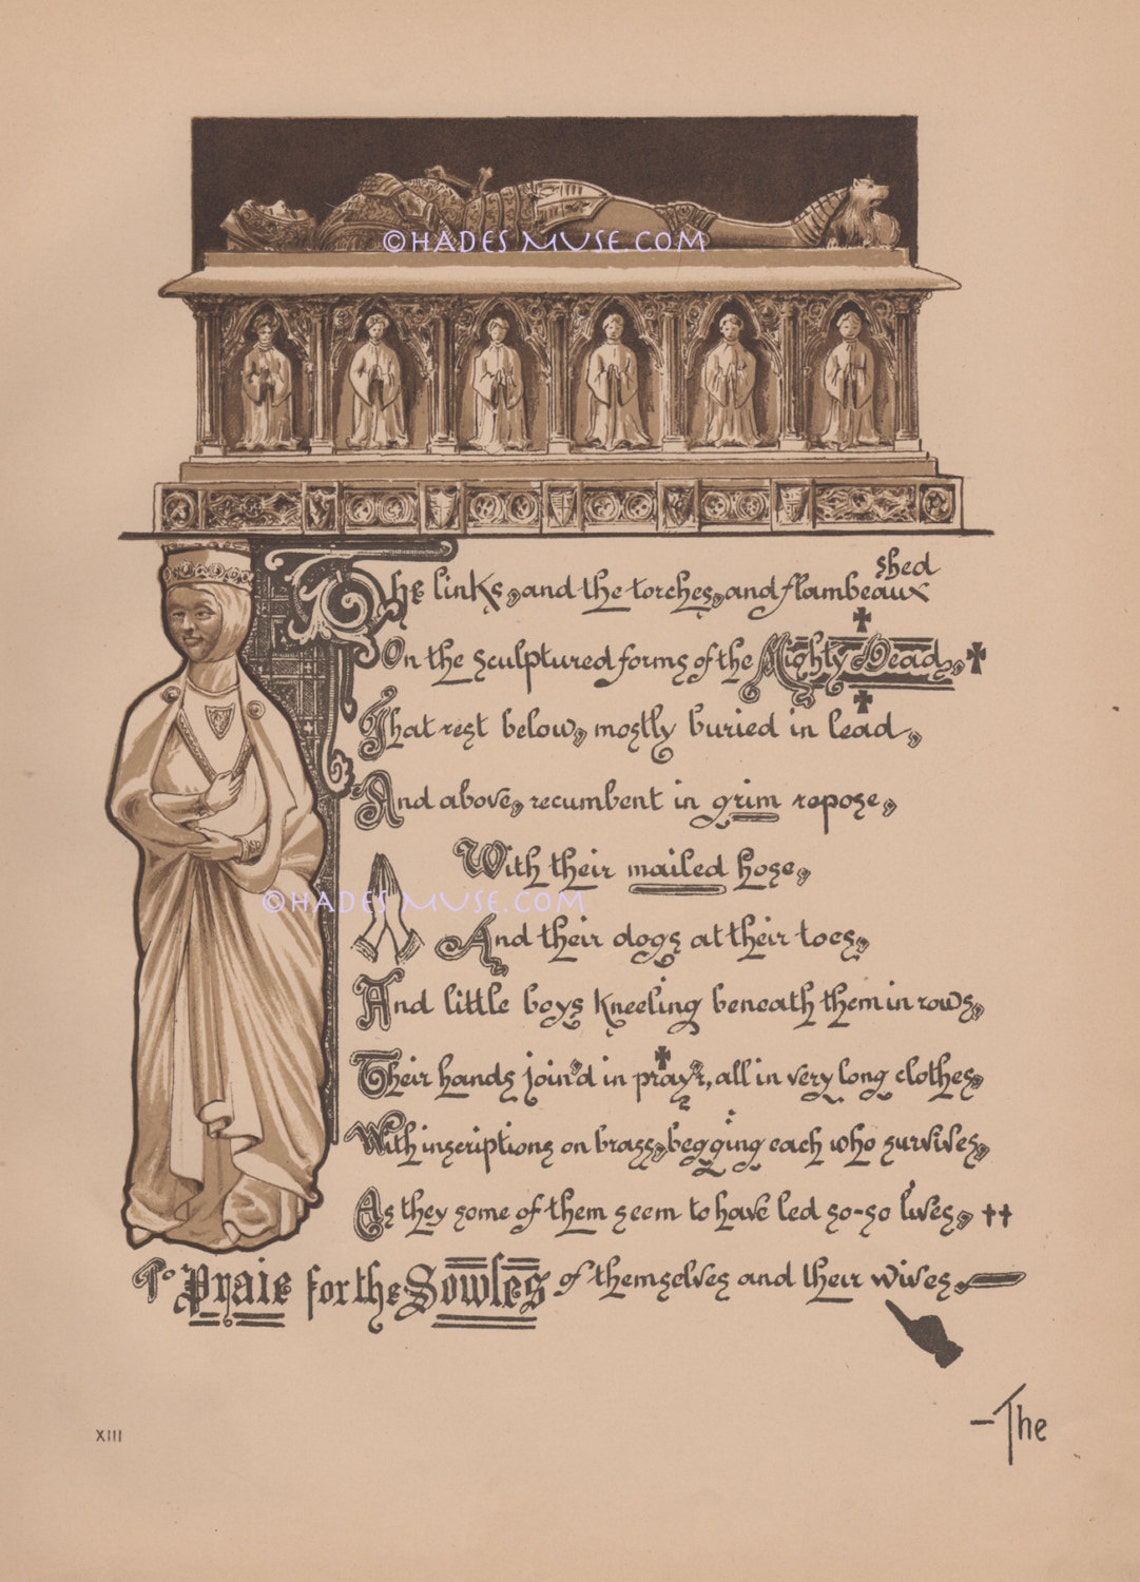 ©HADES MUSE.COM
The links, and the torches, and flambeaux shed
On the sculptured forms of the Mighty Dead,
That rest below, mostly buried in lead,
And above, recumbent in grim repose,
With their mailed hose,
©HADES MUSE.COM
And their dogs at their toes,
And little boys kneeling beneath them in rows,
Their hands join'd in pray'r, all in very long clothes,
With inscriptions on brass, begging each who survives,
As they some of them seem to have led so-so lives,
To Praie for the Sowles of themselves and their wives,
XIII
—The